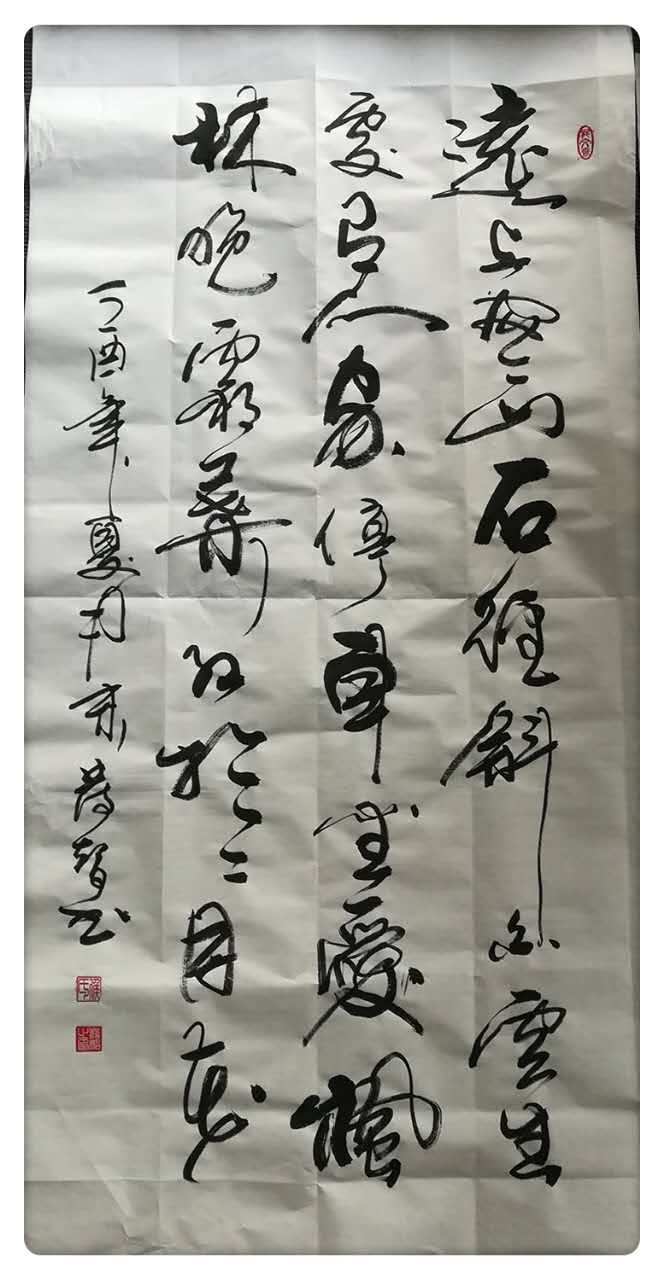 遠上寒山石徑斜白雲生
處有人家停車坐愛楓
林晚霜葉紅於二月花
丁酉年夏月于京智书